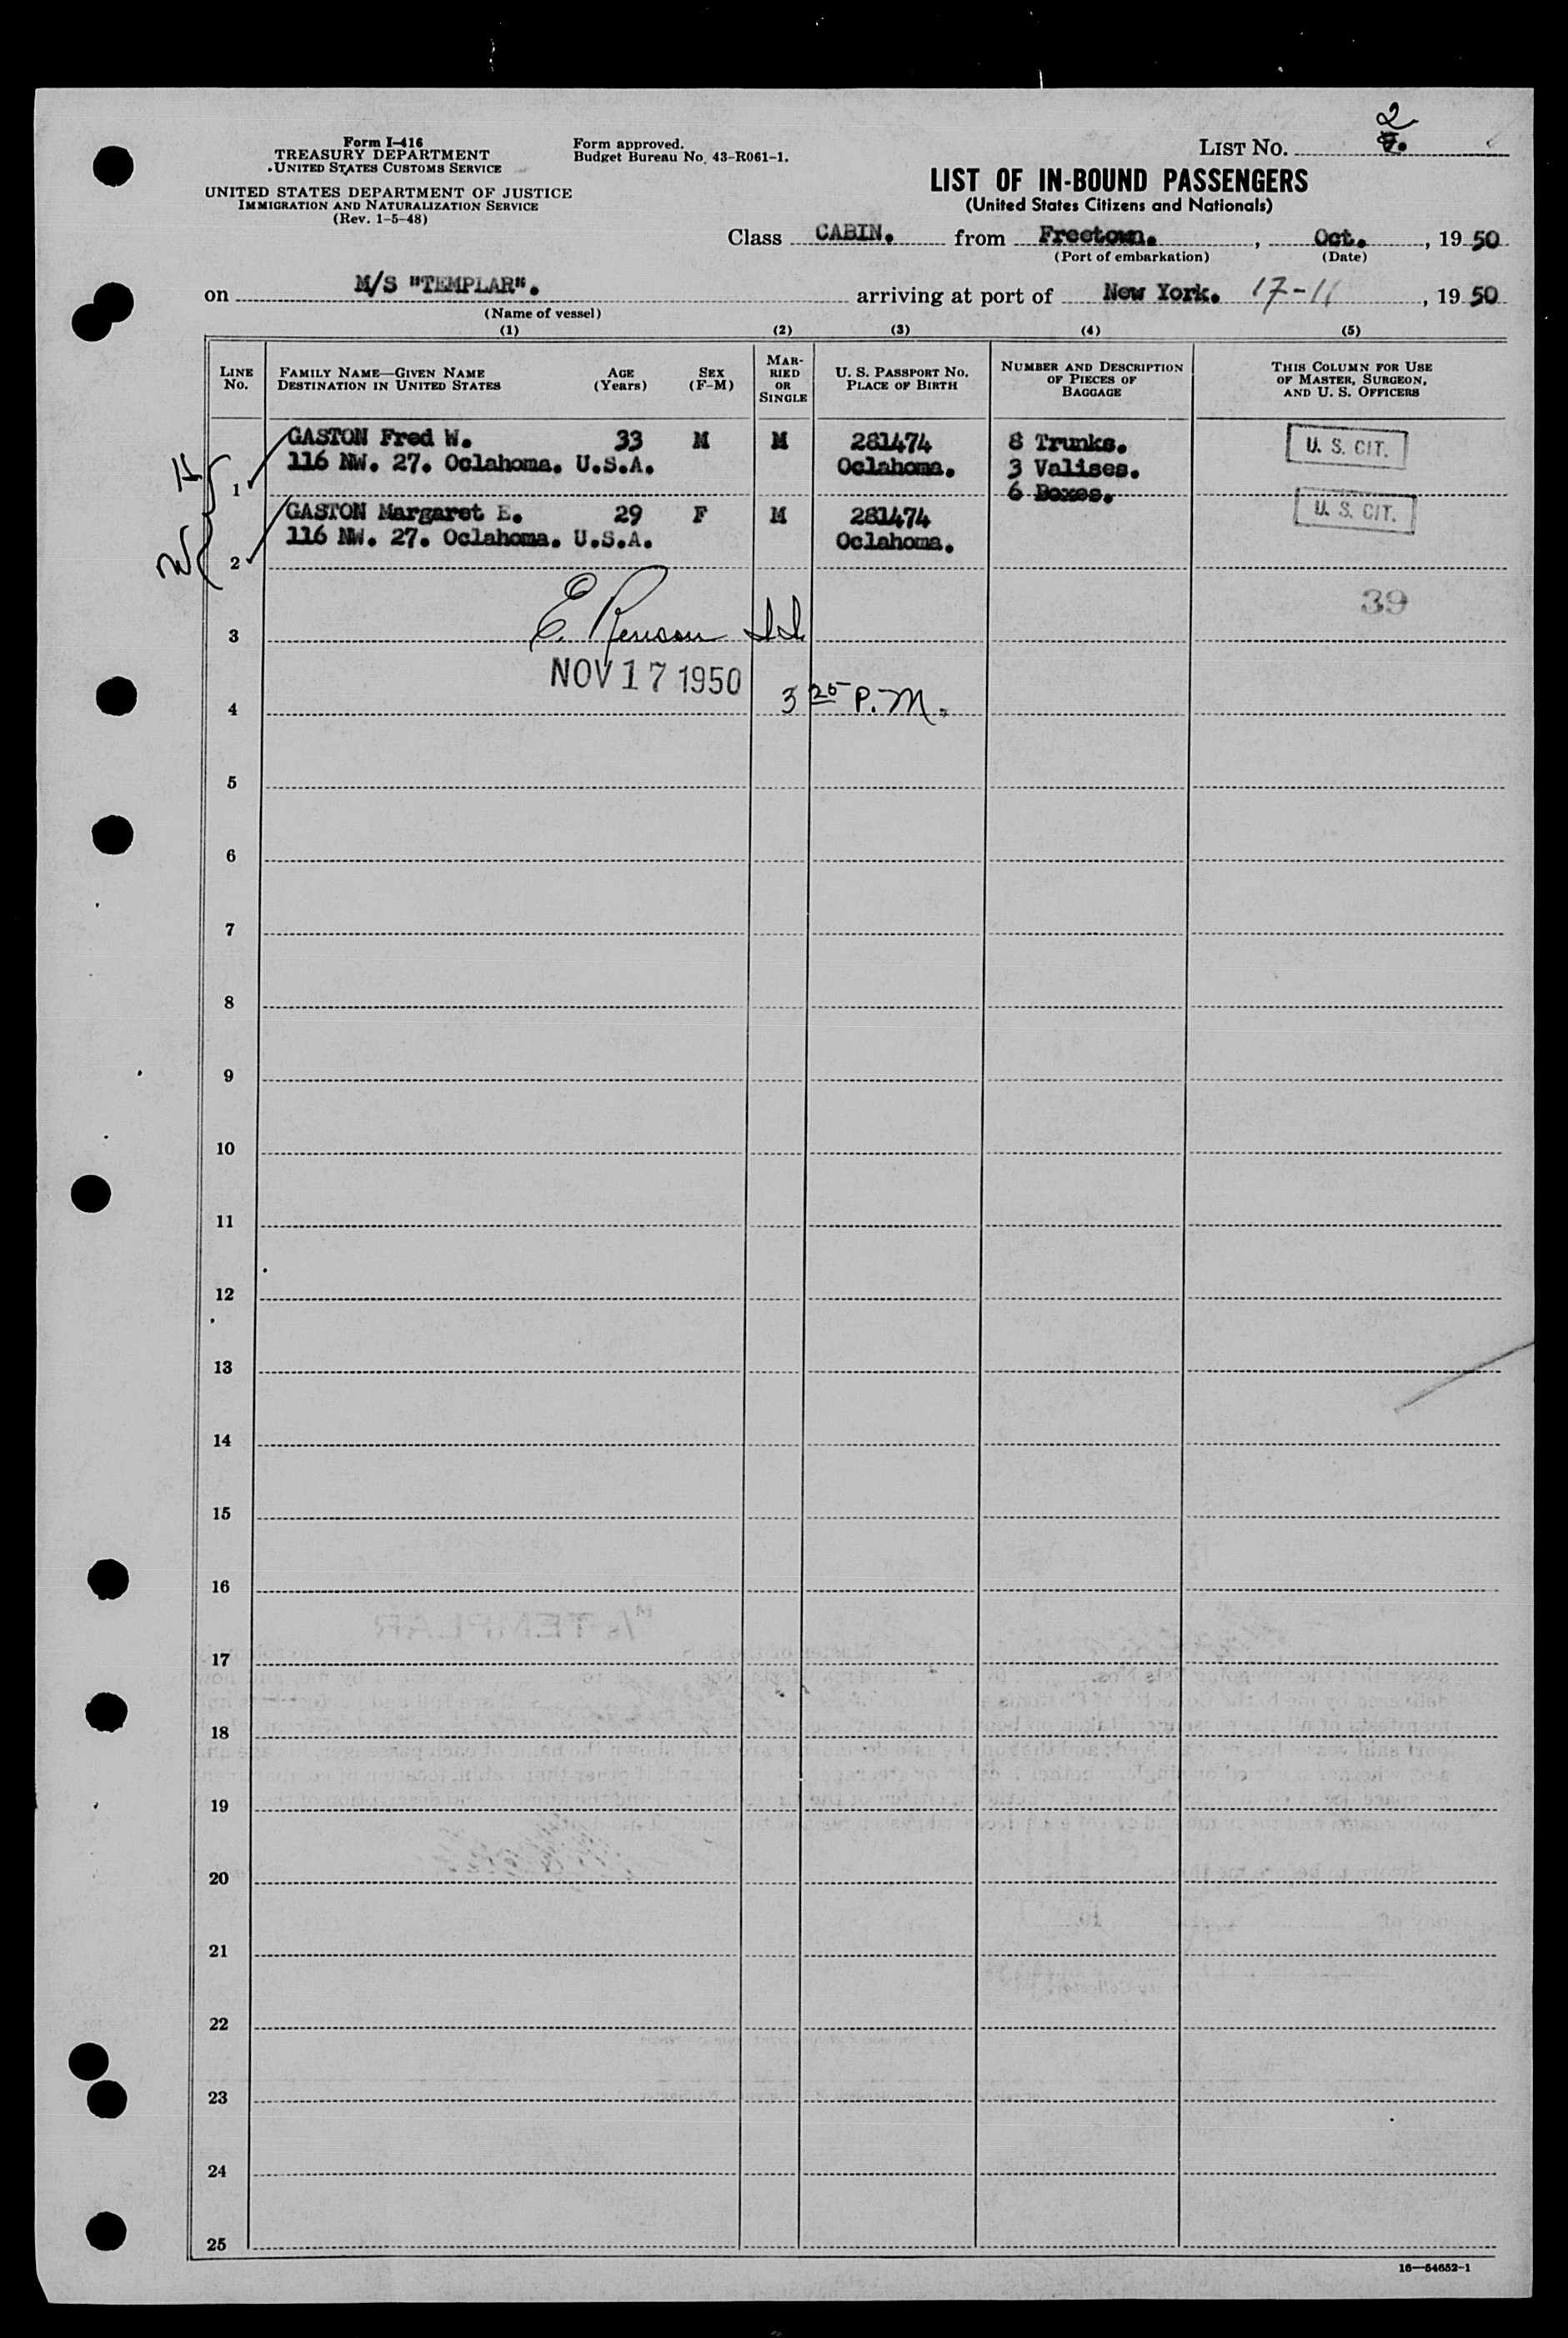 Form I-416
TREASURY DEPARTMENT
UNITED STATES CUSTOMS SERVICE
UNITED STATES DEPARTMENT OF JUSTICE
IMMIGRATION AND NATURALIZATION SERVICE
(Rev. 1-5-48)
Form approved.
Budget Bureau No. 43-R061-1.
2
LIST No.
LIST OF IN-BOUND PASSENGERS
(United States Citizens and Nationals)
Class CABIN. from Freetown. , Oct. , 19 50
(Port of embarkation) (Date)
on M/S "TEMPLAR". arriving at port of New York. 17-11 , 19 50
(Name of vessel)
(1) (2) (3) (4) (5)
LINE No. FAMILY NAME—GIVEN NAME DESTINATION IN UNITED STATES AGE (Years) SEX (F-M) MARRIED OR SINGLE U. S. PASSPORT No. PLACE OF BIRTH NUMBER AND DESCRIPTION OF PIECES OF BAGGAGE THIS COLUMN FOR USE OF MASTER, SURGEON, AND U. S. OFFICERS
GASTON Fred W. 33 M M 281474 8 Trunks. U. S. CIT.
116 NW. 27. Oclahoma. U.S.A. Oclahoma. 3 Valises.
1 6 Boxes.
GASTON Margaret E. 29 F M 281474 U. S. CIT.
116 NW. 27. Oclahoma. U.S.A. Oclahoma.
2
39
3 E.
NOV 17 1950
4 3 25 P.M.
5
6
7
8
9
10
11
12
13
14
15
16
M/S TEMPLAR
17
18
19
20
21
22
23
24
25
16—54652-1